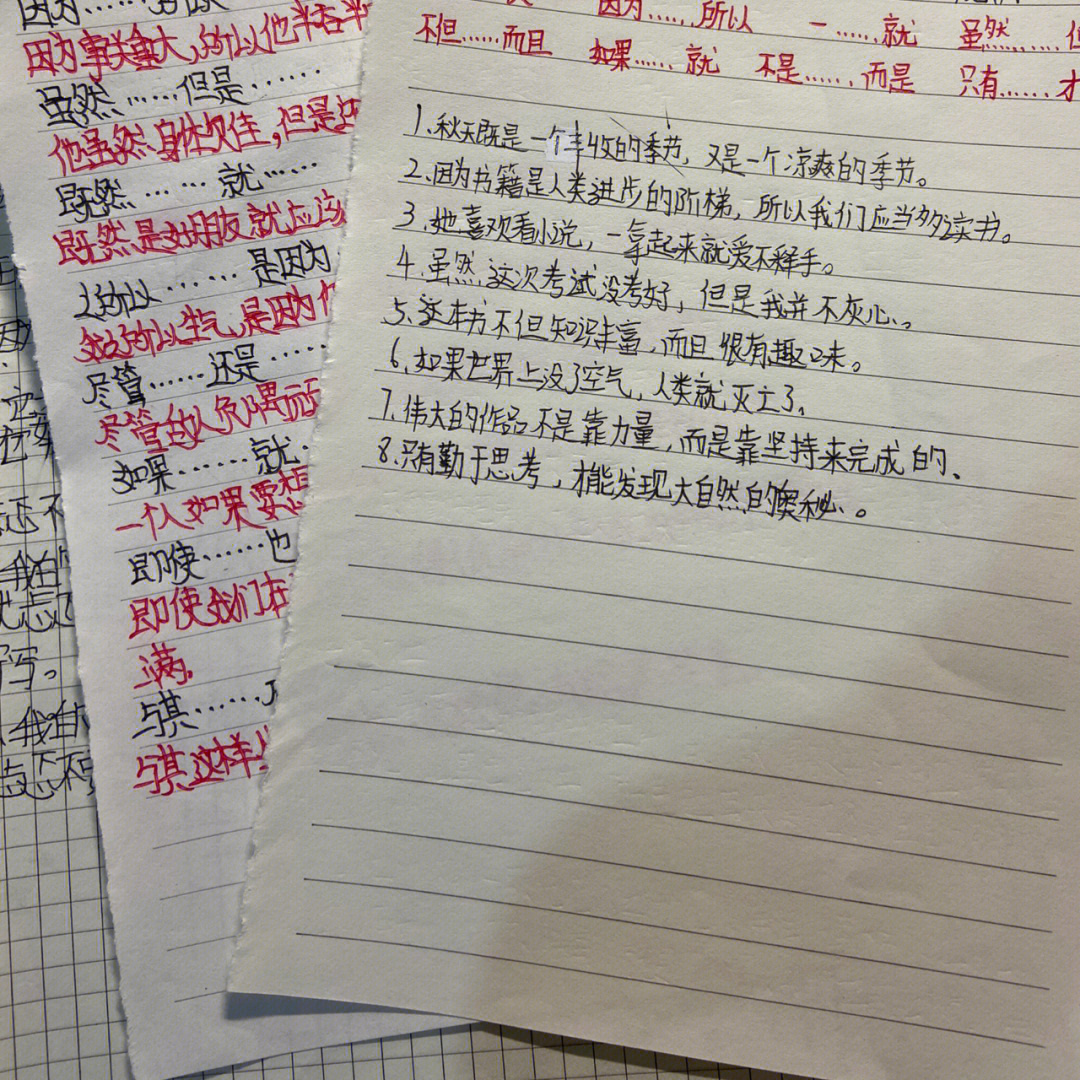 因为……所以 一……就 虽然……但
不但……而且 如果……就 不是……而是 只有……才
1.秋天既是一个丰收的季节，又是一个凉爽的季节。
2.因为书籍是人类进步的阶梯，所以我们应当多读书。
3.她喜欢看小说，一拿起来就爱不释手。
4.虽然这次考试没考好，但是我并不灰心。
5.这本书不但知识丰富，而且很有趣味。
6.如果世界上没了空气，人类就灭亡了。
7.伟大的作品不是靠力量，而是靠坚持来完成的、
8.只有勤于思考，才能发现大自然的奥秘。
因为……
因为事关重大，所以他半
虽然……但是……
他虽然身体欠佳，但是
既然……就……
既然是好朋友就应该
之所以……是因为
她之所以生气，是因为
尽管……还是……
尽管
如果……就…
一个人如果要想
即使……也
即使我们在
满。
与其……
与其这样
还不
我
写。
我